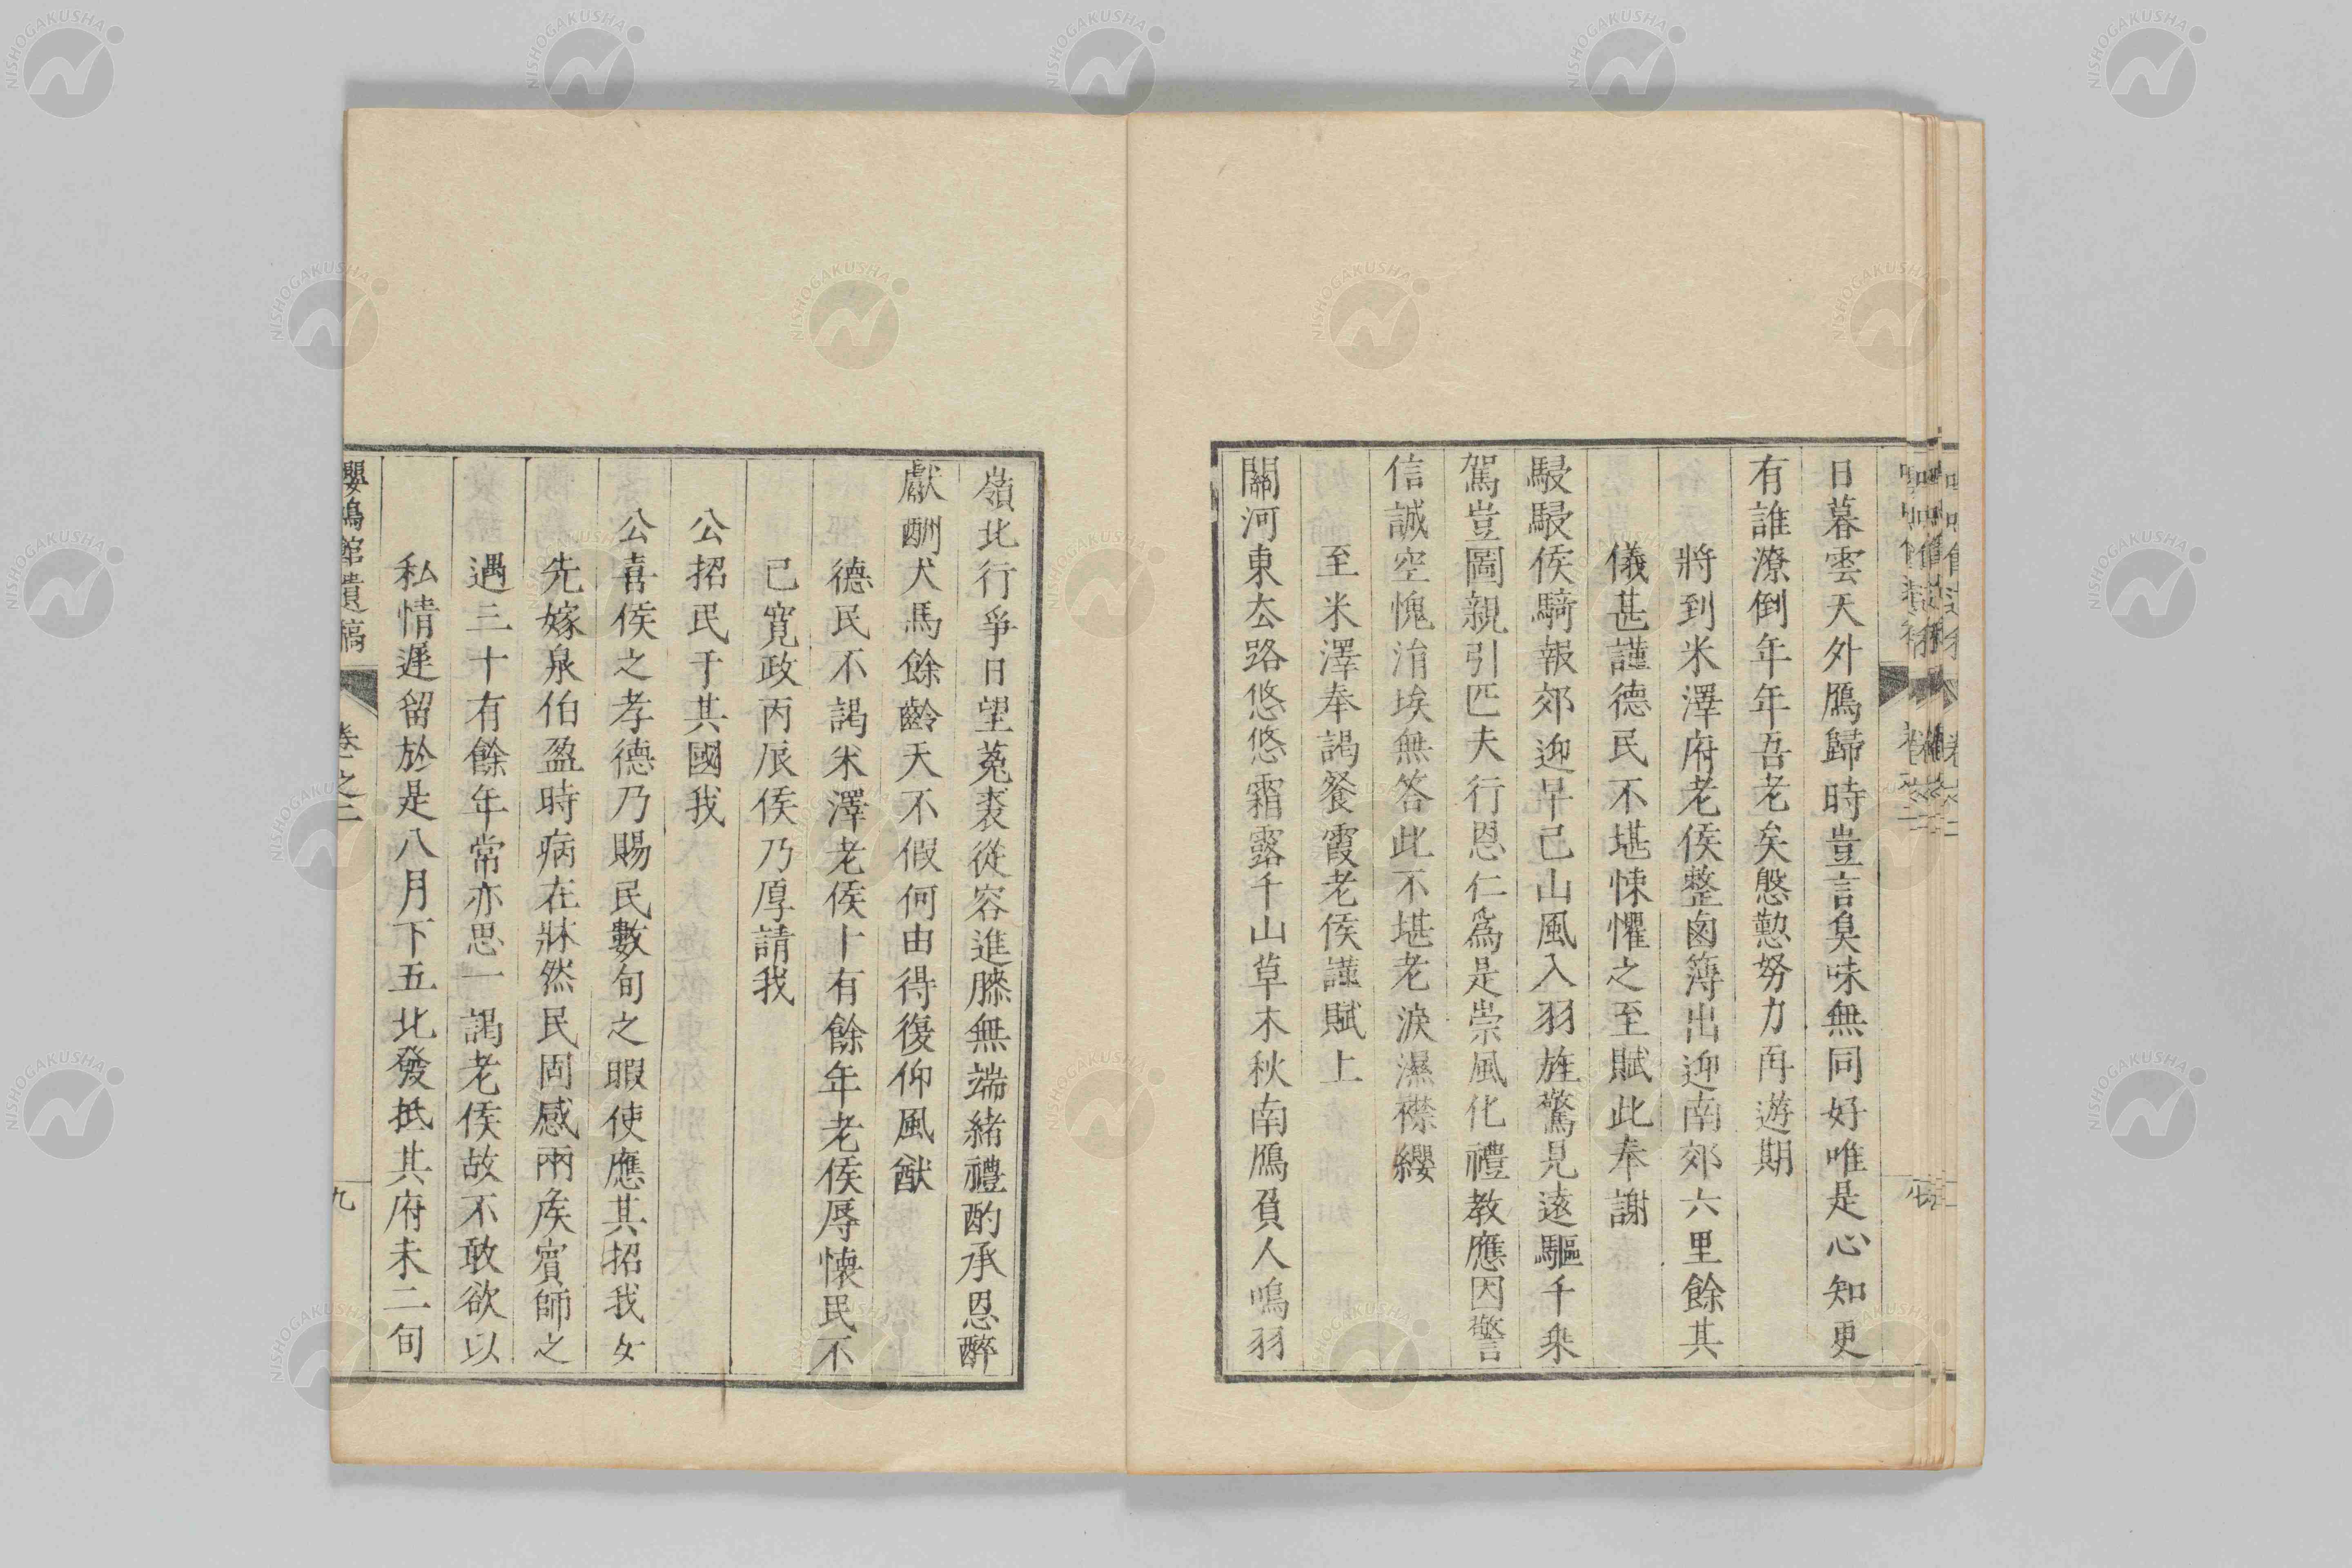 日暮雲天外鴈歸時豈言臭味無同好唯是心知更
有誰潦倒年年吾老矣慇懃努力再遊期
將到米澤府老侯整鹵簿出迎南郊六里餘其
儀甚謹德民不堪悚懼之至賦此奉謝
駸駸侯騎報郊迎早已山風入羽旌驚見遠驅千乗
駕豈圖親引匹夫行恩仁為是崇風化禮教應因警
信誠空愧涓埃無答此不堪老淚濕襟纓
至米澤奉謁餐霞老侯謹賦上
關河東去路悠悠霜露千山草木秋南鴈負人鳴羽
嶺北行爭日望菟裘從容進膝無端緒禮酌承恩醉
獻酬犬馬餘齡天不假何由得復仰風猷
德民不謁米澤老侯十有餘年老侯辱懷民不
已寬政丙辰侯乃厚請我
公招民于其國我
公喜侯之孝德乃賜民數旬之暇使應其招我女
先嫁泉伯盈時病在牀然民固感兩侯賓師之
遇三十有餘年常亦思一謁老侯故不敢欲以
私情遲留於是八月下五北發抵其府未二旬
嚶鳴館遺稿
卷之二
九
NISHOGAKUSHA